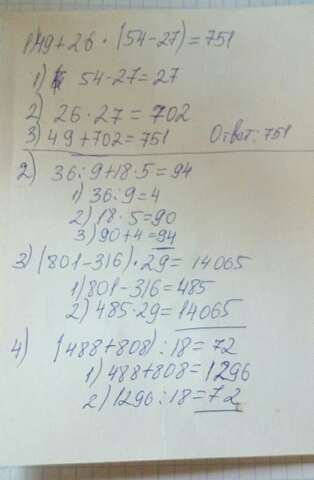 1)49+26·(54-27)=751
1) 54-27=27
2) 26·27=702
3) 49+702=751 Ответ: 751
2) 36:9+18·5=94
1) 36:9=4
2) 18·5=90
3) 90+4=94
3) (801-316)·29=14065
1) 801-316=485
2) 485·29=14065
4) (488+808):18=72
1) 488+808=1296
2) 1296:18=72